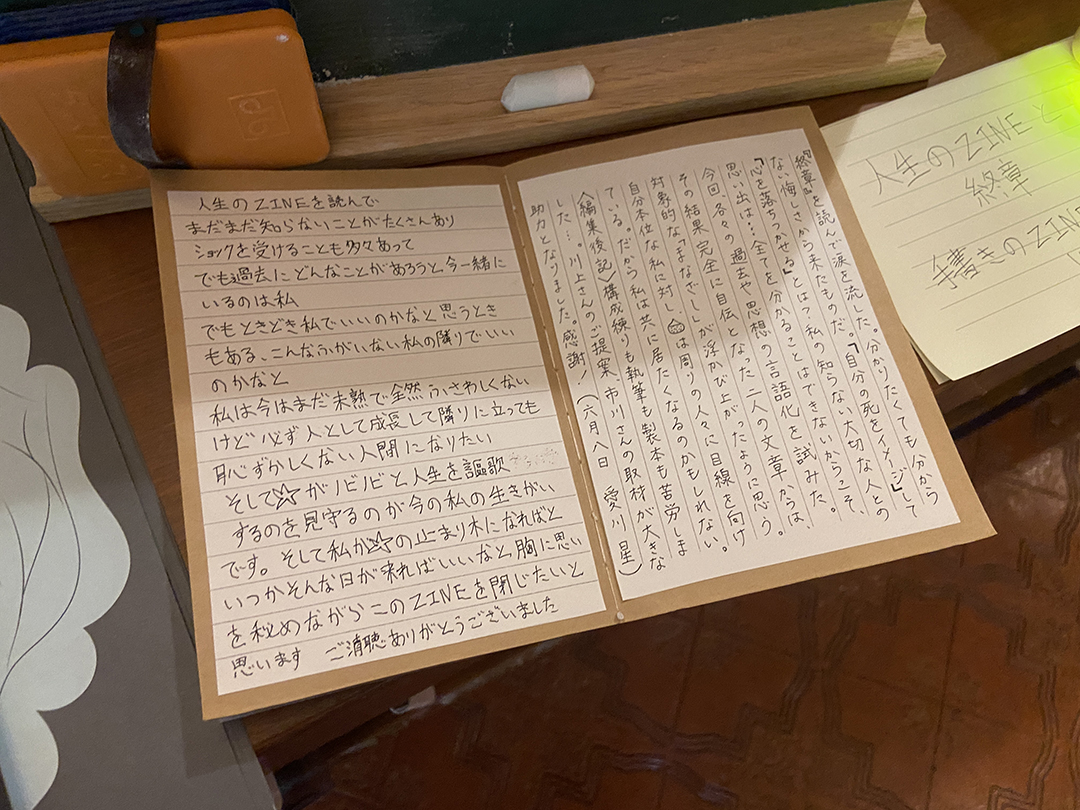 人生のZINEを読んで
まだまだ知らないことがたくさんあり
ショックを受けることも多々あって
でも過去にどんなことがあろうと今一緒に
いるのは私
でもときどき私でいいのかなと思うとき
もある、こんなふがいない私の隣りでいい
のかなと
私は今はまだ未熟で全然ふさわしくない
けど必ず人として成長して隣りに立っても
恥ずかしくない人間になりたい
そして☆がノビノビと人生を謳歌
するのを見守るのが今の私の生きがい
です。そして私が☆の止まり木になればと
いつかそんな日が来ればいいなと胸に思い
を秘めながらこのZINEを閉じたいと
思います ご清聴ありがとうございました
『終章』を読んで涙を流した。分かりたくても分から
ない悔しさから来たものだ。「自分の死をイメージ」して
「心を落ちつかせる」とは？私の知らない大切な人との
思い出は…全てを分かることはできないからこそ、
今回各々の過去や思想の言語化を試みた。
その結果完全に自伝となった二人の文章からは、
対象的な「まなざし」が浮かび上がったように思う。
自分本位な私に対し、は周りの人々に目線を向け
ている。だから私は共に居たくなるのかもしれない。
（編集後記）構成練りも執筆も製本も苦労しま
した…。川上さんのご提案、市川さんの取材が大きな
助力となりました。感謝！（六月八日 愛川 星）
人生のZINEと
終章
手書きのZINE